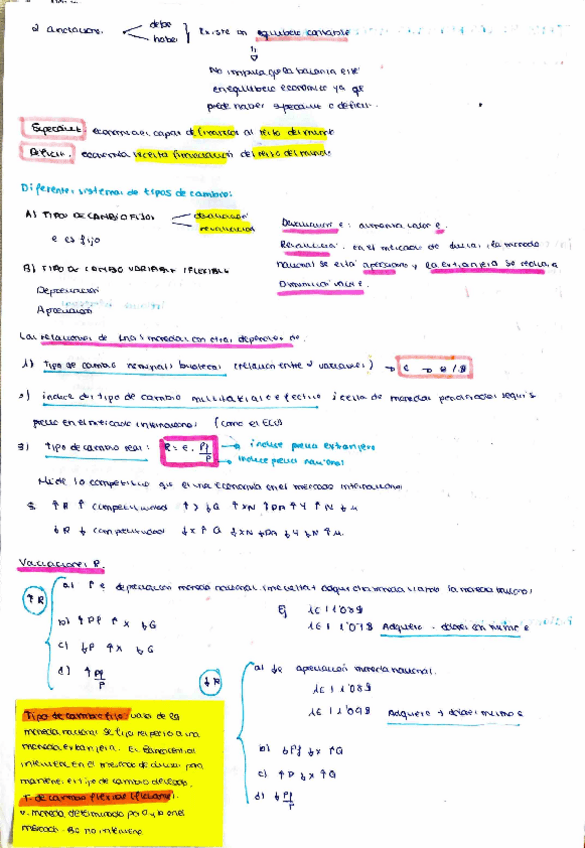 2 anotaciones. debe
haber
Existe un equilibrio contable
No implica que la balanza esté
en equilibrio económico ya que
puede haber superávit o déficit.
Superávit. economía es capaz de financiar al resto del mundo
Déficit. economía necesita financiación del resto del mundo
Diferentes sistemas de tipos de cambio:
A) TIPO DE CAMBIO FIJOS
devaluación
revaluación
e es fijo
Devaluación e: aumenta valor e.
Revaluación. en el mercado de divisas, la moneda
nacional se está apreciando y la extranjera se
Disminución valor e.
B) TIPO DE CAMBIO VARIABLE (FLEXIBLE)
Depreciación
Apreciación
Las relaciones de una moneda con otras dependen de.
1) Tipo de cambio nominal bilateral (relación entre 2 variables) → e → €/$
2) índice del tipo de cambio multilateral e efectivo (cesta de monedas ponderadas según
peso en el mercado internacional (como el ECU)
3) tipo de cambio real: R = e · Pf/P
→ índice precio extranjero
→ índice precio nacional
Mide lo competitivo que es una economía en el mercado internacional
↑R ↑ competitividad ↑X ↓G ↑XN ↑DA ↑Y ↑N ↓u
↓R ↓ competitividad ↓X ↑G ↓XN ↓DA ↓Y ↓N ↑u
Variaciones R.
↑R
a) ↑e depreciación moneda nacional.
Ej 1€ | 1'08$
1€ | 1'07$ Adquiero - dólares con mismo €
b) ↑Pf ↑X ↓G
c) ↓P ↑X ↓G
d) ↑Pf/P
↓R
a) ↓e apreciación moneda nacional.
1€ | 1'08$
1€ | 1'09$ Adquiero + dólares mismo €
b) ↓Pf ↓X ↑G
c) ↑P ↓X ↑G
d) ↓Pf/P
Tipo de cambio fijo valor de la
moneda nacional se fija respecto a una
moneda extranjera. El Banco Central
interviene en el mercado de divisas para
mantener el tipo de cambio deseado.
T. de cambio flexible (flotante).
v. moneda determinado por O y D en el
mercado. BC no interviene.